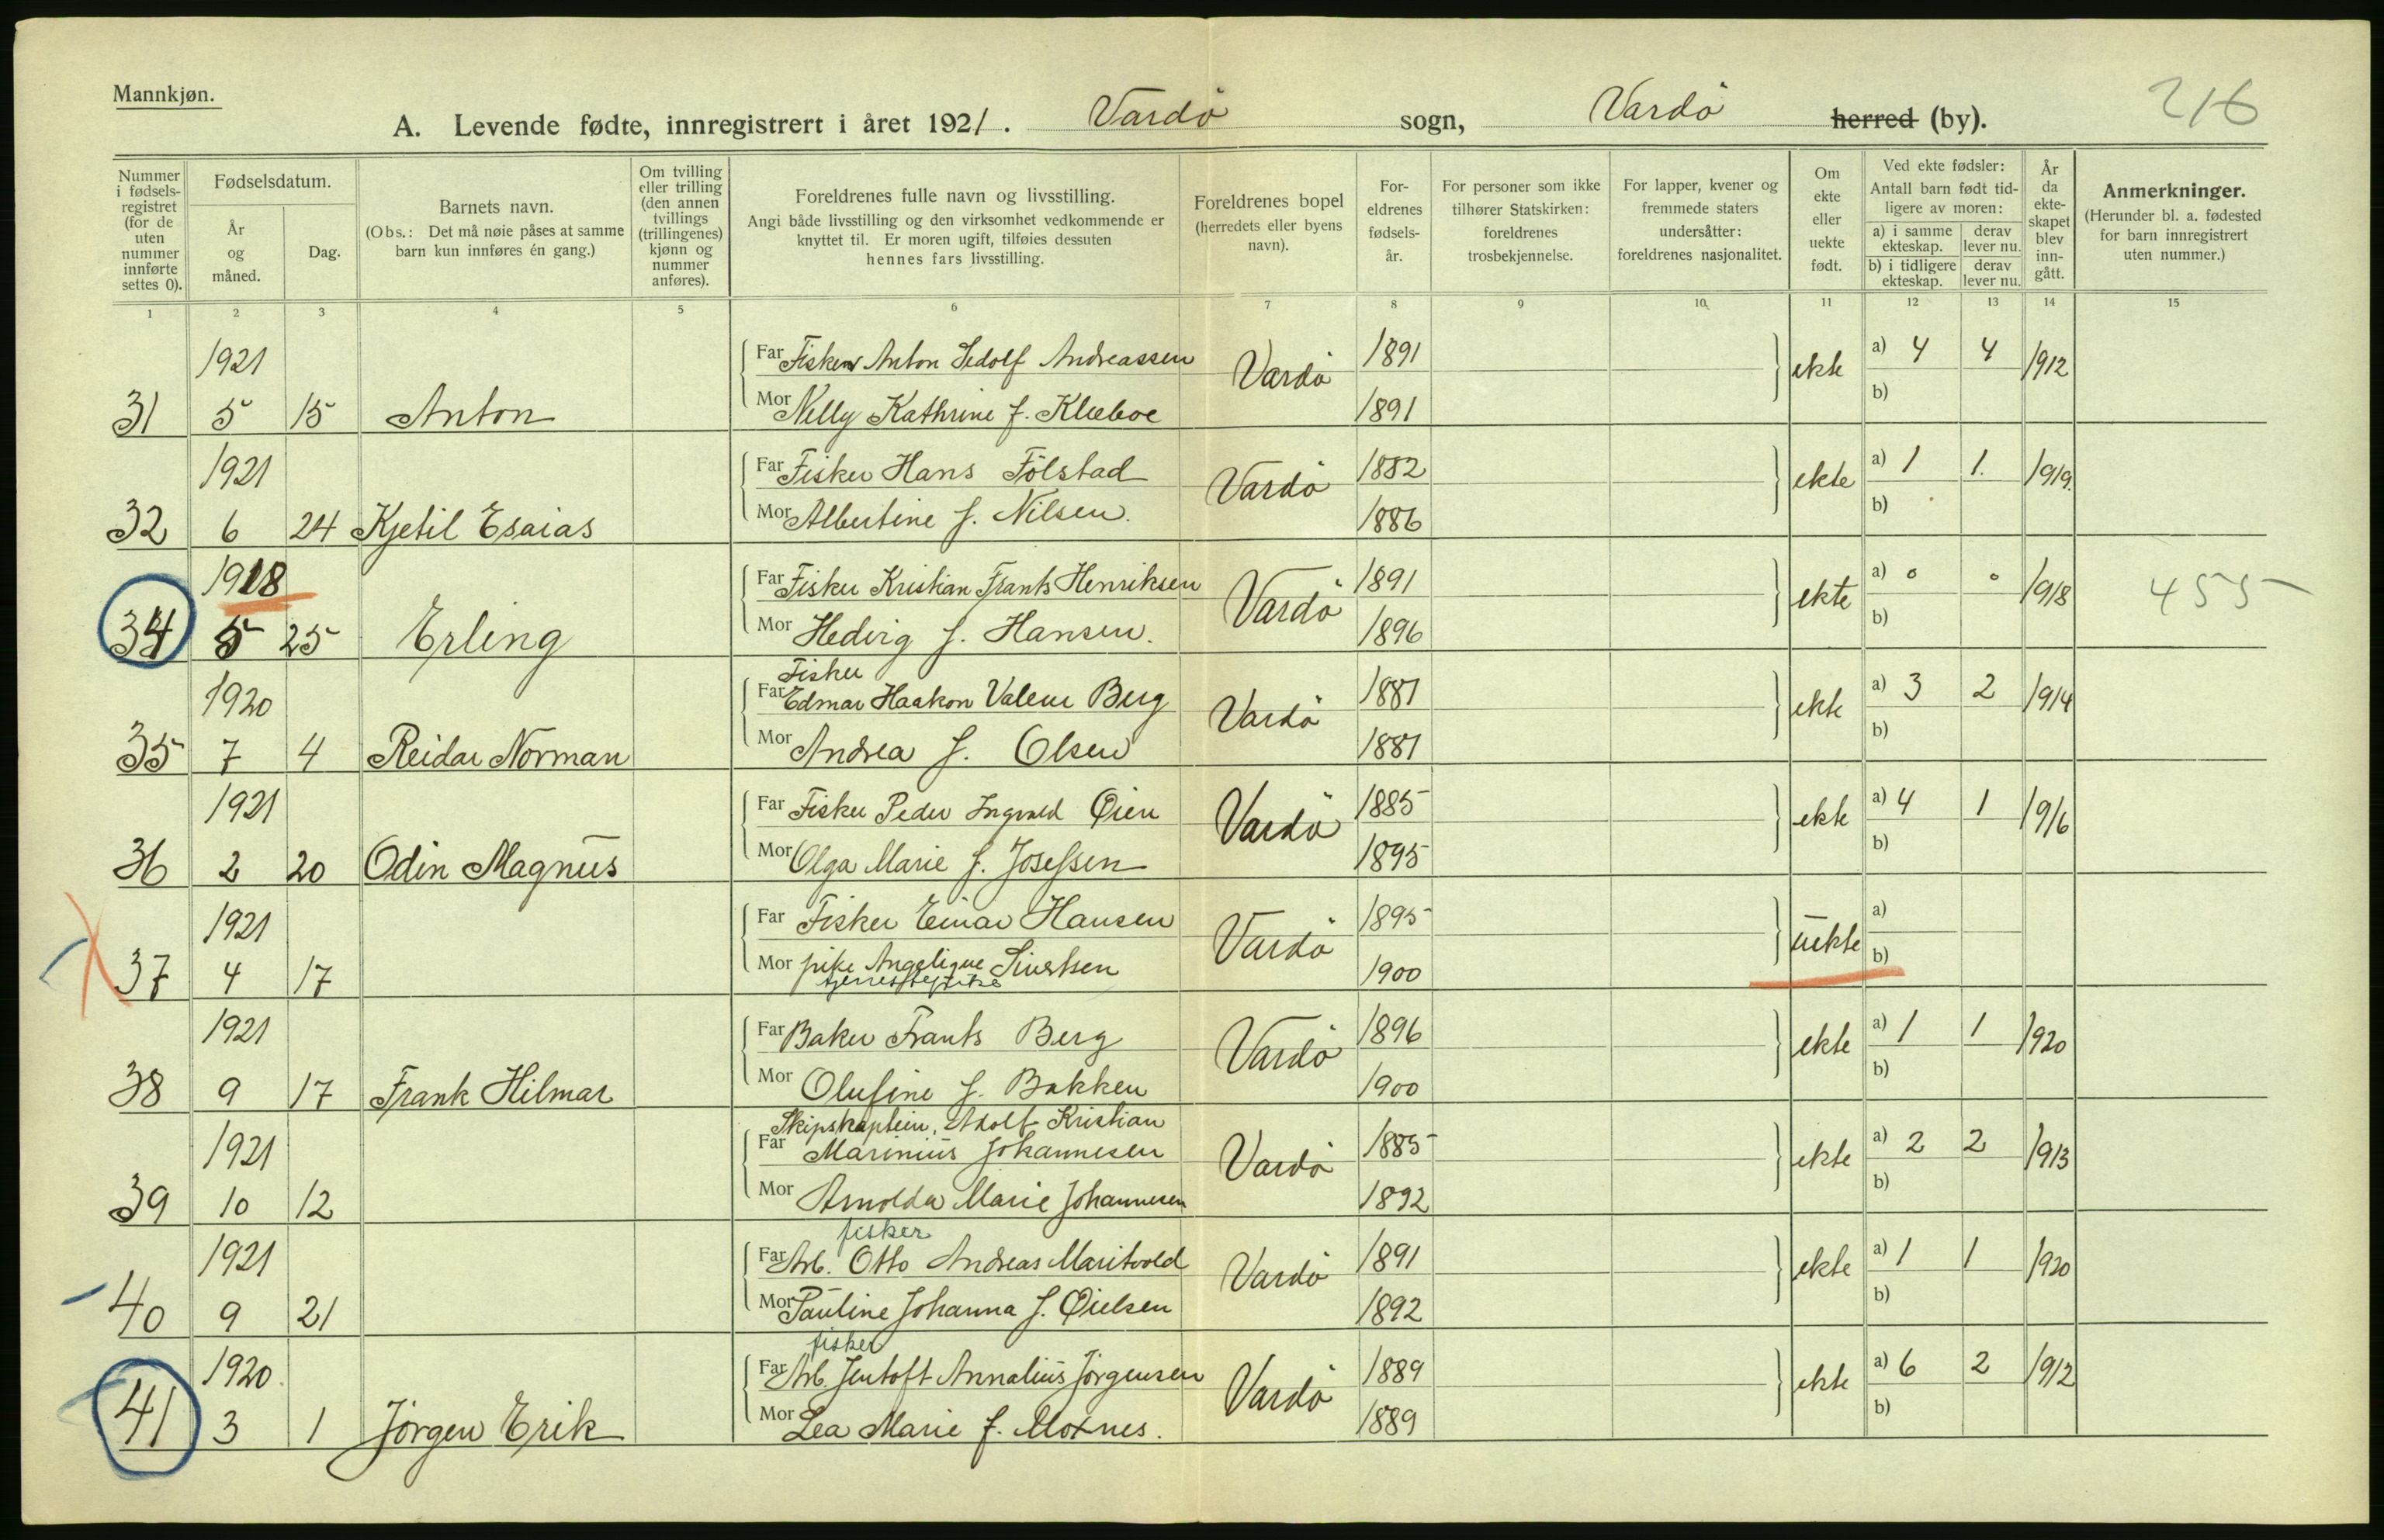 Mannkjøn.
A. Levende fødte, innregistrert i året 1921. Vardö sogn, Vardö herred (by). 216
Nummer i fødsels-registret (for de uten nummer innførte settes 0).
Fødselsdatum.
År og måned.
Dag.
Barnets navn.
(Obs.: Det må nøie påses at samme barn kun innføres én gang.)
Om tvilling eller trilling (den annen tvillings (trillingenes) kjønn og nummer anføres).
Foreldrenes fulle navn og livsstilling.
Angi både livsstilling og den virksomhet vedkommende er knyttet til. Er moren ugift, tilføies dessuten hennes fars livsstilling.
Foreldrenes bopel (herredets eller byens navn).
For-eldrenes fødsels-år.
For personer som ikke tilhører Statskirken: foreldrenes trosbekjennelse.
For lapper, kvener og fremmede staters undersåtter: foreldrenes nasjonalitet.
Om ekte eller uekte født.
Ved ekte fødsler: Antall barn født tid-ligere av moren:
a) i samme ekteskap. derav lever nu.
b) i tidligere ekteskap. derav lever nu.
År da ekte-skapet blev inn-gått.
Anmerkninger.
(Herunder bl. a. fødested for barn innregistrert uten nummer.)
1 2 3 4 5 6 7 8 9 10 11 12 13 14 15
1921 Far Fisker Anton Sedolf Andreassen Vardö 1891 ekte a) 4 4 1912
31 5 15 Anton Mor Nelly Kathrine f. Klæboe 1891 b)
1921 Far Fisker Hans Fölstad Vardö 1882 ekte a) 1 1. 1919.
32 6 24 Kjetil Esaias Mor Albertine f. Nilsen. 1886 b)
1918 Far Fisker Kristian Frants Henriksen Vardö 1891 ekte a) 0 0 1918 455
34 5 25 Erling Mor Hedvig f. Hansen. 1896 b)
Fisker
1920 Far Edmar Haakon Valeur Berg Vardö 1881 ekte a) 3 2 1914
35 7 4 Reidar Norman Mor Andrea f. Olsen 1881 b)
1921 Far Fisker Peder Ingvald Øien Vardö 1885 ekte a) 4 1 1916
36 2 20 Odin Magnus Mor Olga Marie f. Josefsen 1895 b)
1921 Far Fisker Einar Hansen Vardö 1895 uekte a)
37 4 17 Mor pike Angelique Sivertsen 1900 b)
1921 Far Baker Frants Berg Vardö 1896 ekte a) 1 1 1920
38 9 17 Frank Hilmar Mor Olufine f. Bakken 1900 b)
Skipskaptein, Adolf Kristian
1921 Far Marinius Johannesen Vardö 1885 ekte a) 2 2 1913
39 10 12 Mor Arnolda Marie Johannesen 1892 b)
fisker
1921 Far Arb. Otto Andreas Maritvold Vardö 1891 ekte a) 1 1 1920
40 9 21 Mor Pauline Johanna f. Øielsen 1892 b)
fisker
1920. Far Arb. Jentoft Annalius Jörgensen Vardö 1889 ekte a) 6 2 1912
41 3 1 Jörgen Erik Mor Lea Marie f. Moxnes. 1889 b)